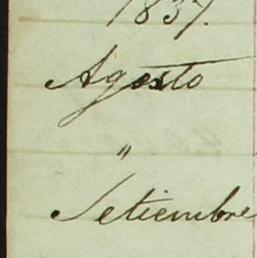 1837.
Agosto
"
Setiembre